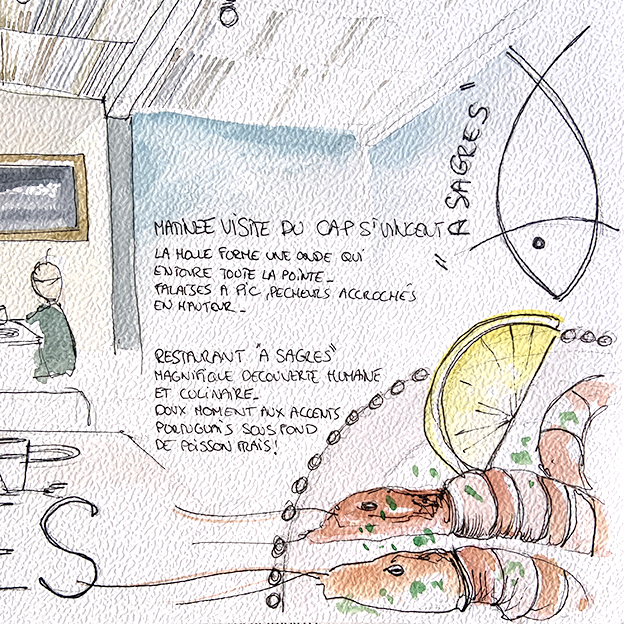 "A SAGRES"
MATINEE VISITE DU CAP ST VINCENT
LA HOULE FORME UNE ONDE QUI
ENTOURE TOUTE LA POINTE_
FALAISES A PIC, PECHEURS ACCROCHÉS
EN HAUTEUR_
RESTAURANT "A SAGRES"
MAGNIFIQUE DECOUVERTE HUMAINE
ET CULINAIRE_
DOUX MOMENT AUX ACCENTS
PORTUGUAIS SOUS FOND
DE POISSON FRAIS!
ES